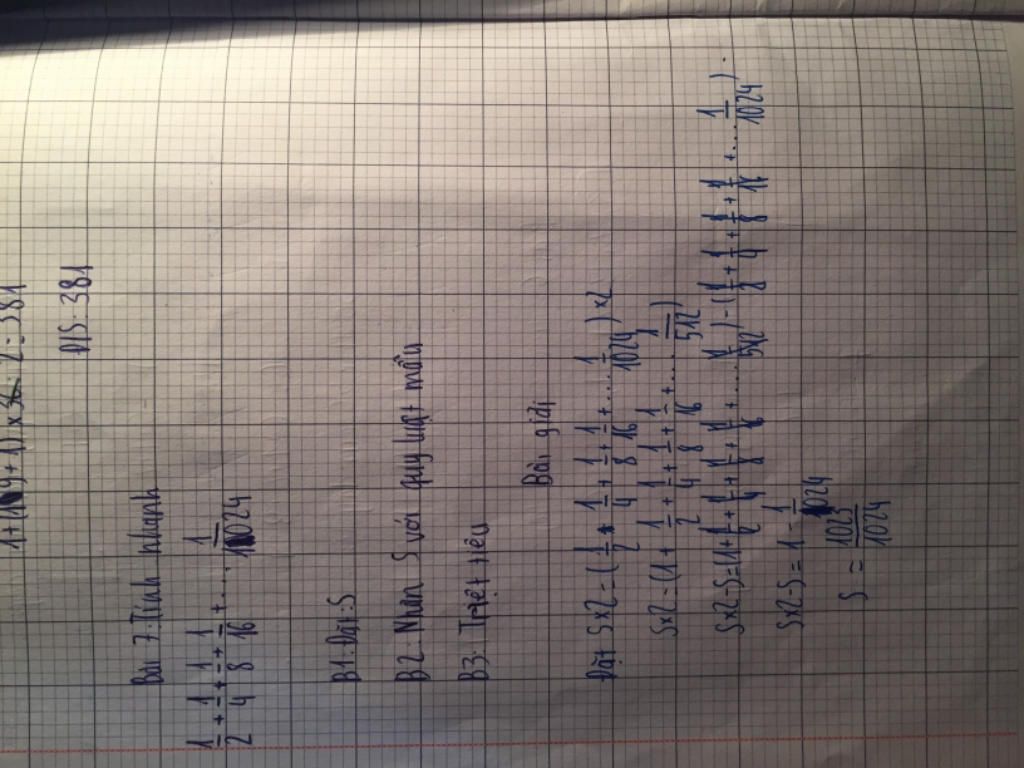 1+(119+1) x 36: 2=381
Đ/S: 381
Bài 7: Tính nhanh
1/2 + 1/4 + 1/8 + 1/16 + .... 1/1024
B1: Đặt: S
B2: Nhân S với quy luật mẫu
B3: Triệt tiêu
Bài giải
Đặt Sx2 = (1/2 + 1/4 + 1/8 + 1/16 + .... 1/1024) x2
Sx2 = (1 + 1/2 + 1/4 + 1/8 + 1/16 + .... 1/512)
Sx2-S = (1+ 1/2 + 1/4 + 1/8 + 1/16 + ..... 1/512) - (1/2 + 1/4 + 1/8 + 1/16 + .... 1/1024).
Sx2-S = 1 - 1/1024
S = 1023/1024